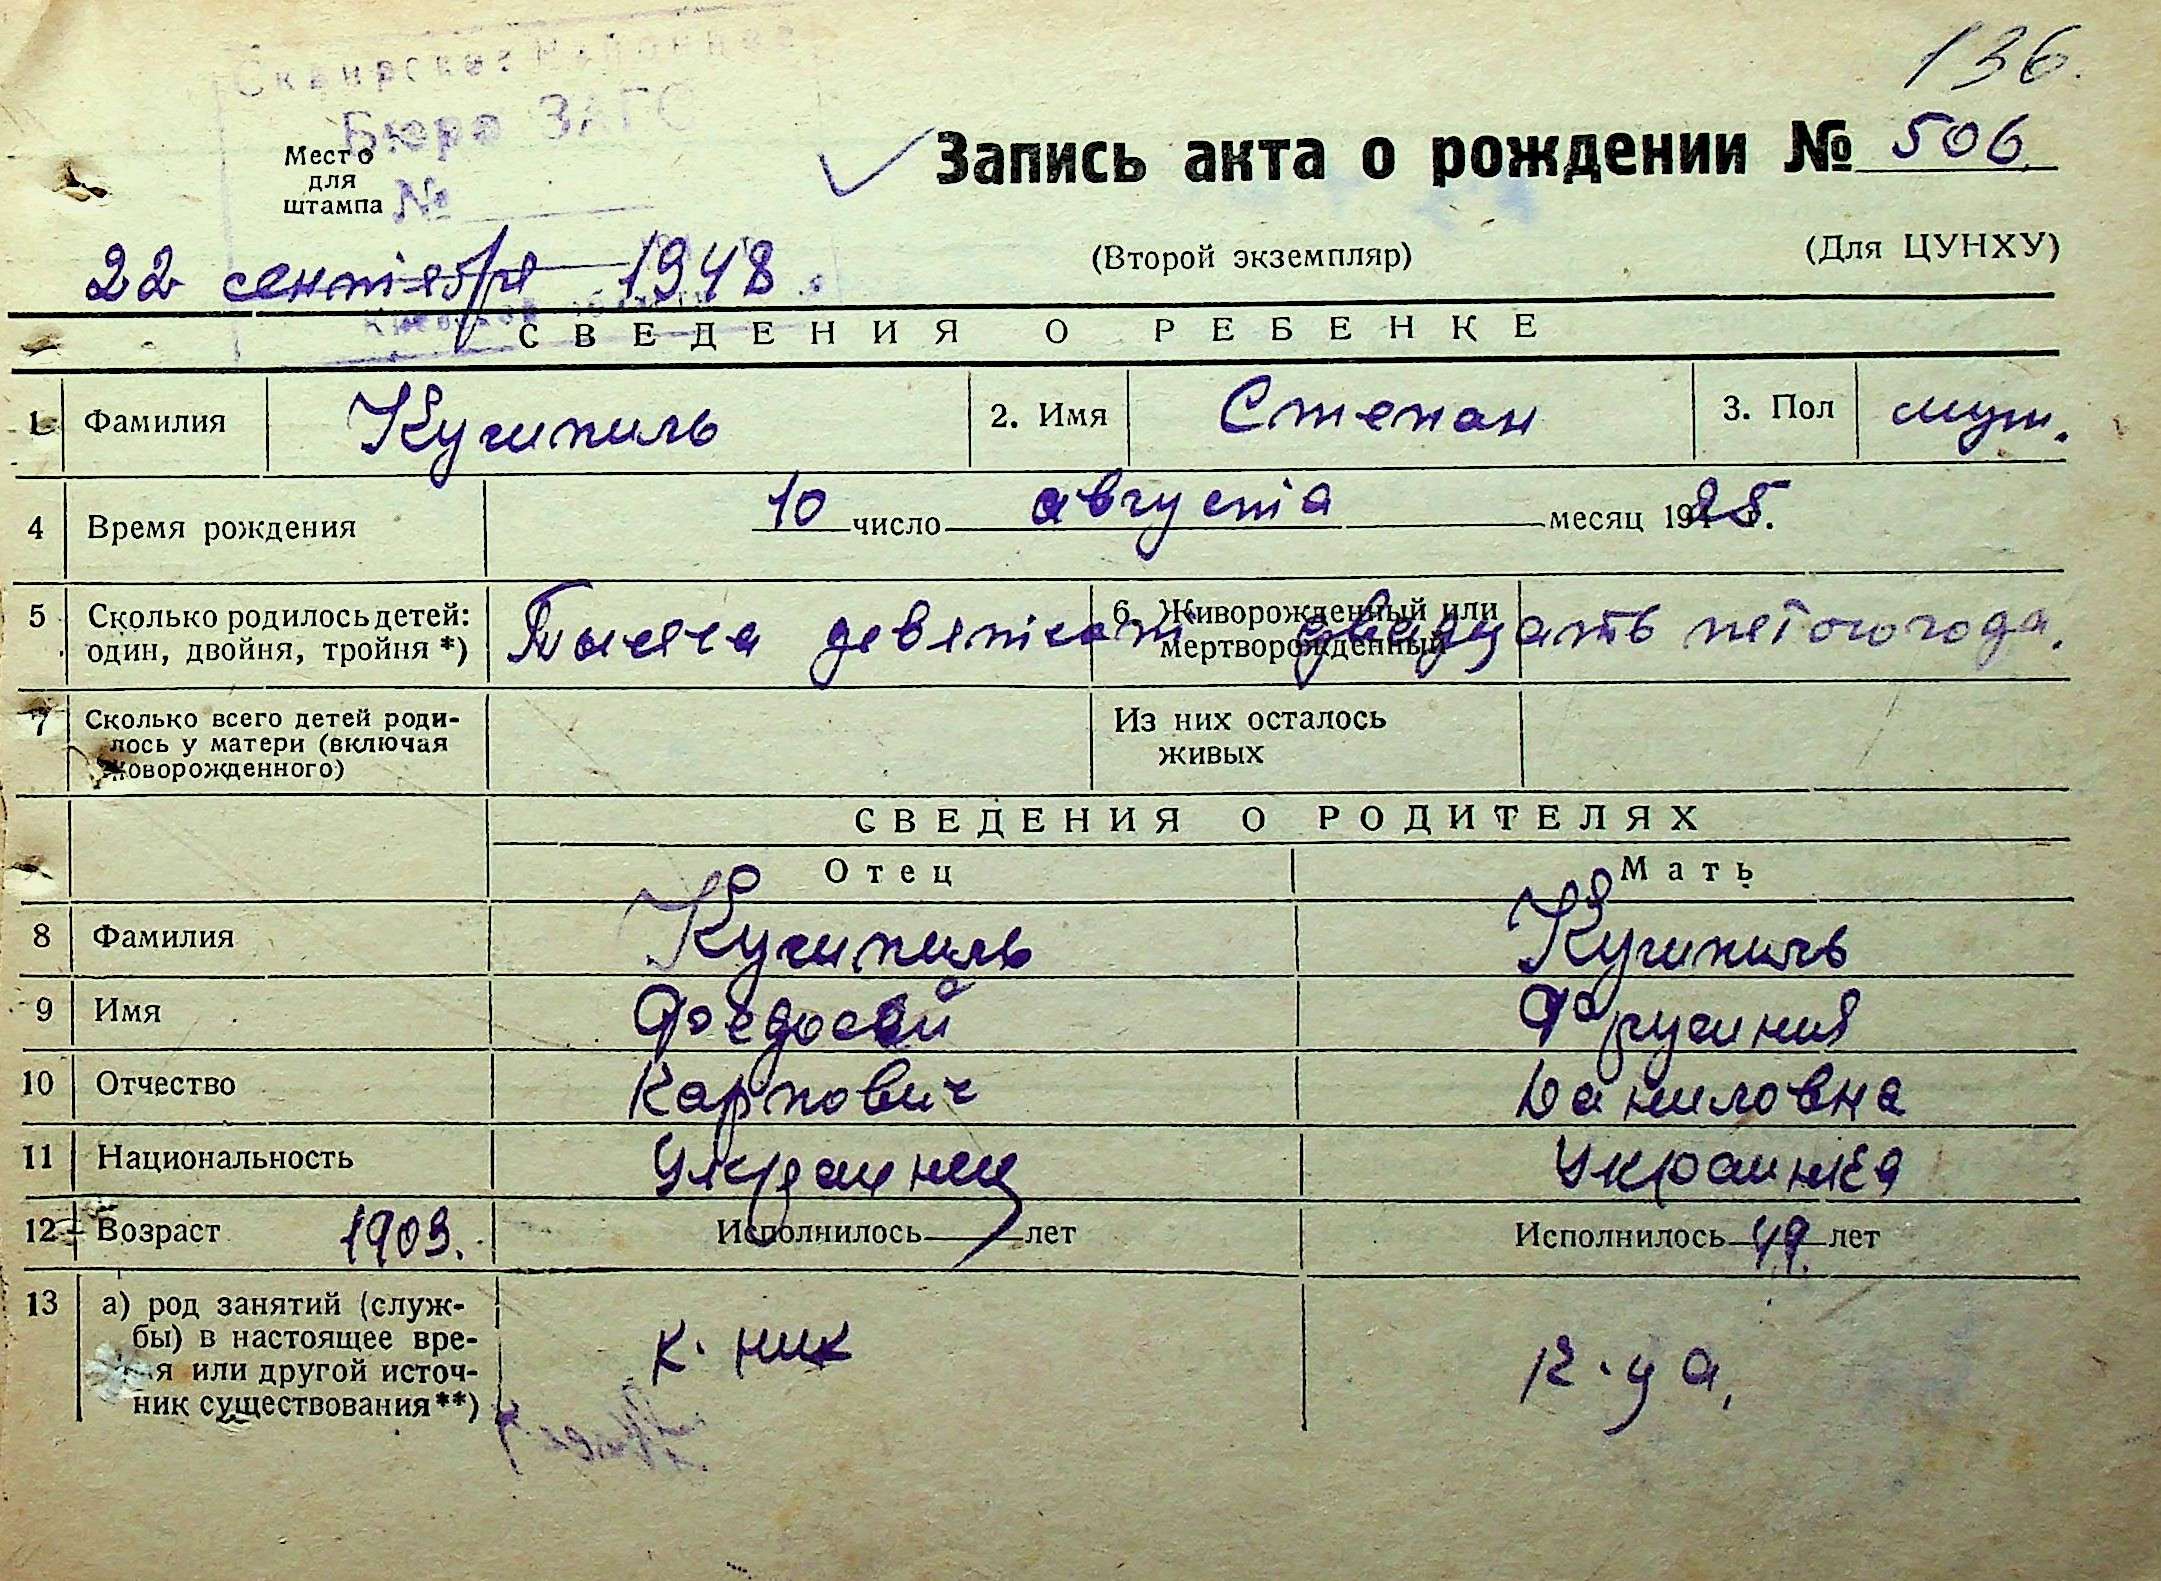 136.
Сквирское Районное
Бюро ЗАГС
Место
для
штампа №
Запись акта о рождении № 506.
22 сентября 1948.
(Второй экземпляр)
(Для ЦУНХУ)
Киевской области
СВЕДЕНИЯ О РЕБЕНКЕ
1 Фамилия Кучипиль 2. Имя Степан 3. Пол муж.
4 Время рождения 10 число августа месяц 1925.
5 Сколько родилось детей: один, двойня, тройня *) 6. Живорожденный или мертворожденный
Тысяча девятсот двадцать петого года.
7 Сколько всего детей родилось у матери (включая новорожденного) Из них осталось живых
СВЕДЕНИЯ О РОДИТЕЛЯХ
Отец Мать
8 Фамилия Кучипиль Кучипиль
9 Имя Фоедосей Фрусиния
10 Отчество Карпович Даниловна
11 Национальность Украинец Украинка
12 Возраст 1903. Исполнилось лет Исполнилось 49. лет
13 а) род занятий (служ-
бы) в настоящее вре-
мя или другой источ-
ник существования**)
к. ник к-ца,